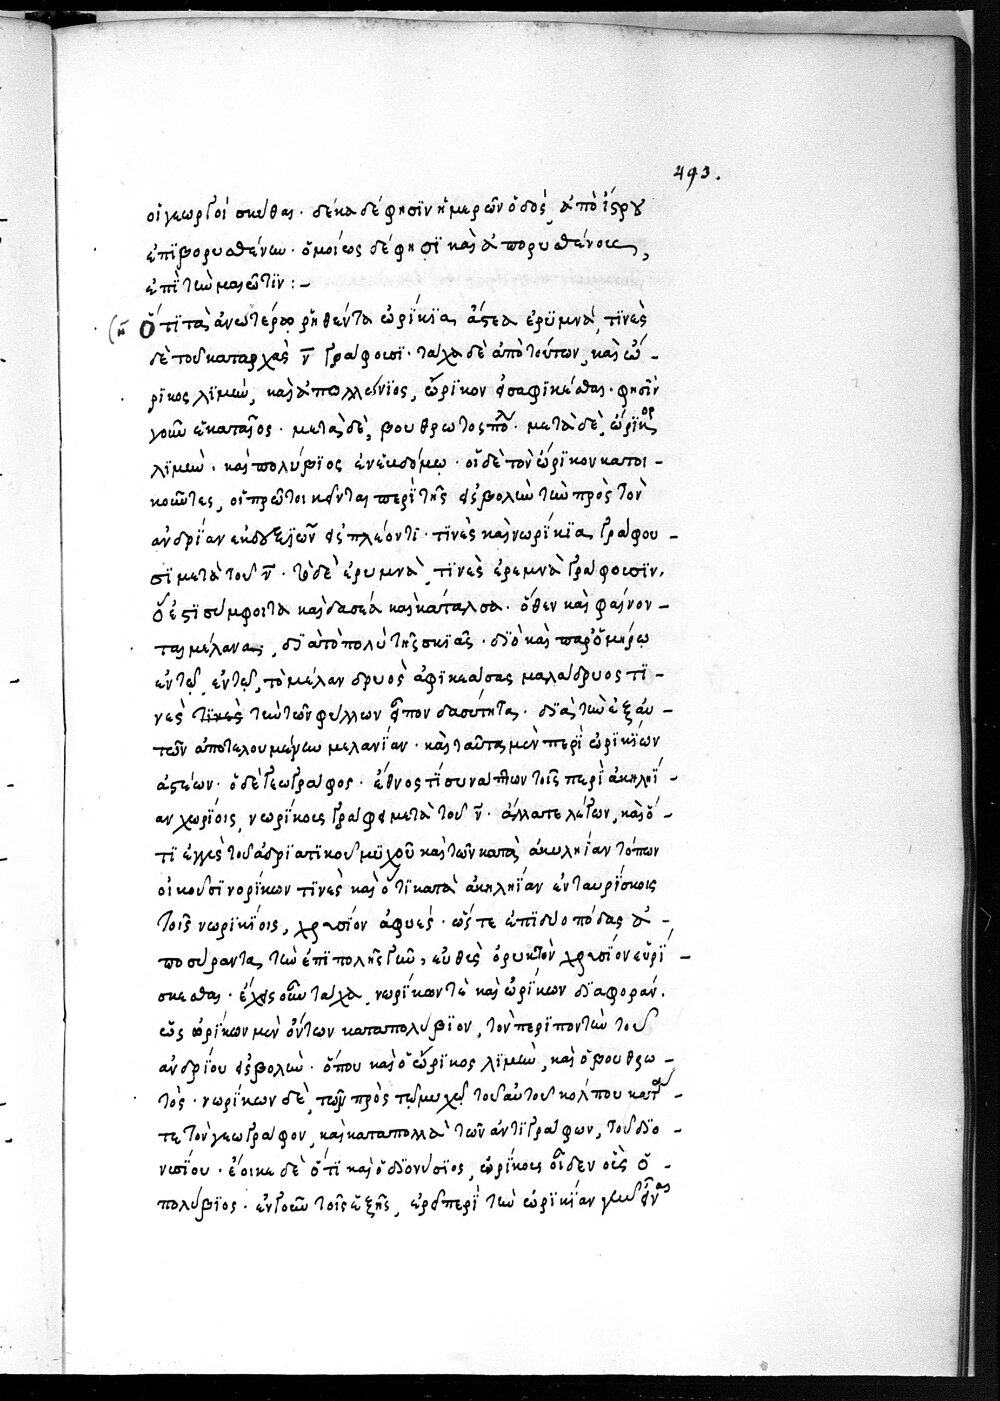 493.
οἱ γεωργοὶ σκύθαι. δέκα δέ φησιν ἡμερῶν ὁδὸς ἀπὸ ἴστρου
ἐπὶ βορυσθένην. ὁμοίως δέ φησι καὶ ἀπὸ βορυσθένους,
ἐπὶ τὴν μαιῶτιν:-
Ὅτι τὰ ἀνωτέρω ῥηθέντα ὠρίκια ἄστεα ἐρυμνά, τινὲς
δὲ τοῦ κατ' ἀρχὰς ν γράφουσι. τάχα δὲ ἀπὸ τούτων, καὶ ὤ-
ρικος λιμήν, καὶ ἀπολλώνιος, ὤρικον εἰσαφικέσθαι. φησὶν
γοῦν ἑκαταῖος. μετὰ δὲ, βουθρωτὸς πόλις. μετὰ δὲ, ὠρικὸς
λιμήν. καὶ πολύβιος ἐν ἑβδόμῳ. οἱ δὲ τὸν ὤρικον κατοι-
κοῦντες, οἳ πρῶτοι κεῖνται περὶ τῆς εἰσβολὴν τὴν πρὸς τὸν
ἀνδρίαν ἐκ δεξιῶν εἰσπλέοντι. τινὲς καὶ νωρίκια γράφου-
σι μετὰ τοῦ ν. τὸ δὲ ἐρυμνὰ, τινὲς ἐρεμνὰ γράφουσιν,
ὅ ἐστι σύμφυτα καὶ δασέα καὶ κατάλσα. ὅθεν καὶ φαίνον-
ται μέλανα, διὰ τὸ πολὺ τῆς σκιᾶς. διὸ καὶ παρ' ὁμήρῳ
ἐν τῷ, ἐν τῷ, τὸ μέλαν δρυὸς ἀμφικεάσας μέλαν δρυὸς τι-
νὲς τινὲς τὴν τῶν φύλλων εἶπον δασύτητα. διὰ τὴν ἐξ αὐ-
τῶν ἀποτελουμένην μελανίαν. καὶ ταῦτα μὲν περὶ ὠρικίων
ἀστέων. ὁ δὲ γεωγράφος. ἔθνος τι συνάπτων τοῖς περὶ ἀκηληΐ-
αν χωρίοις, νωρίκους γράφει μετὰ τοῦ ν. ἀλλὰ τε λέγων, καὶ ὅ-
τι ἐγγὺς τοῦ ἀδριατικοῦ μυχοῦ καὶ τῶν κατὰ ἀκυληΐαν τόπων
οἰκοῦσι νορίκων τινὲς καὶ ὅτι κατὰ ἀκηληΐαν ἐν ταυρίσκοις
τοῖς νωρικίοις, χρυσίον ἀφυές. ὥστε ἐπὶ δύο πόδας ἀ-
ποσύραντα τὴν ἐπιπολῆς γῆν, εὐθὺς ὀρυκτὸν χρυσίον εὑρί-
σκεσθαι. ἔχει οὖν τάχα νωρίκων τὲ καὶ ὠρίκων διαφοράν.
ὡς ὠρίκων μὲν ὄντων κατὰ πολύβιον, τὸν περίποντην τοῦ
ἀνδρίου εἰσβολὴν. ὅπου καὶ ὁ ὤρικος λιμήν, καὶ ὁ βουθρω-
τός. νωρίκων δὲ, τῶν πρὸς τῷ μυχῷ τοῦ αὐτοῦ κόλπου κατά-
τε τὸν γεωγράφον, καὶ κατὰ πολλὰ τῶν ἀντιγράφων, τοῦ διο-
νυσίου. ἔοικε δὲ ὅτι καὶ ὁ διονύσιος, ὠρίκους οἶδεν οὓς ὁ-
πολύβιος. ἐν γοῦν τοῖς ἑξῆς, ἐρεῖ περὶ τὴν ὠρικίαν γῆν εἶναι